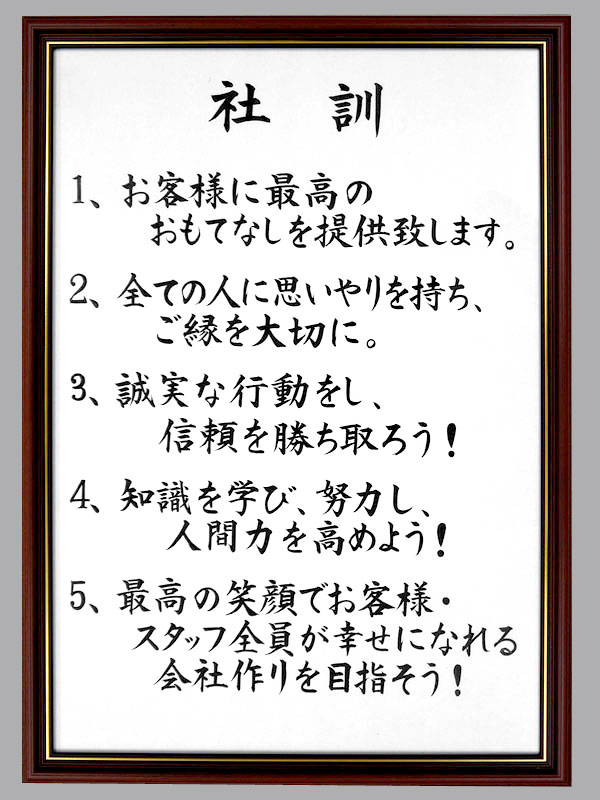 社　訓
1、お客様に最高の
おもてなしを提供致します。
2、全ての人に思いやりを持ち、
ご縁を大切に。
3、誠実な行動をし、
信頼を勝ち取ろう！
4、知識を学び、努力し、
人間力を高めよう！
5、最高の笑顔でお客様・
スタッフ全員が幸せになれる
会社作りを目指そう！